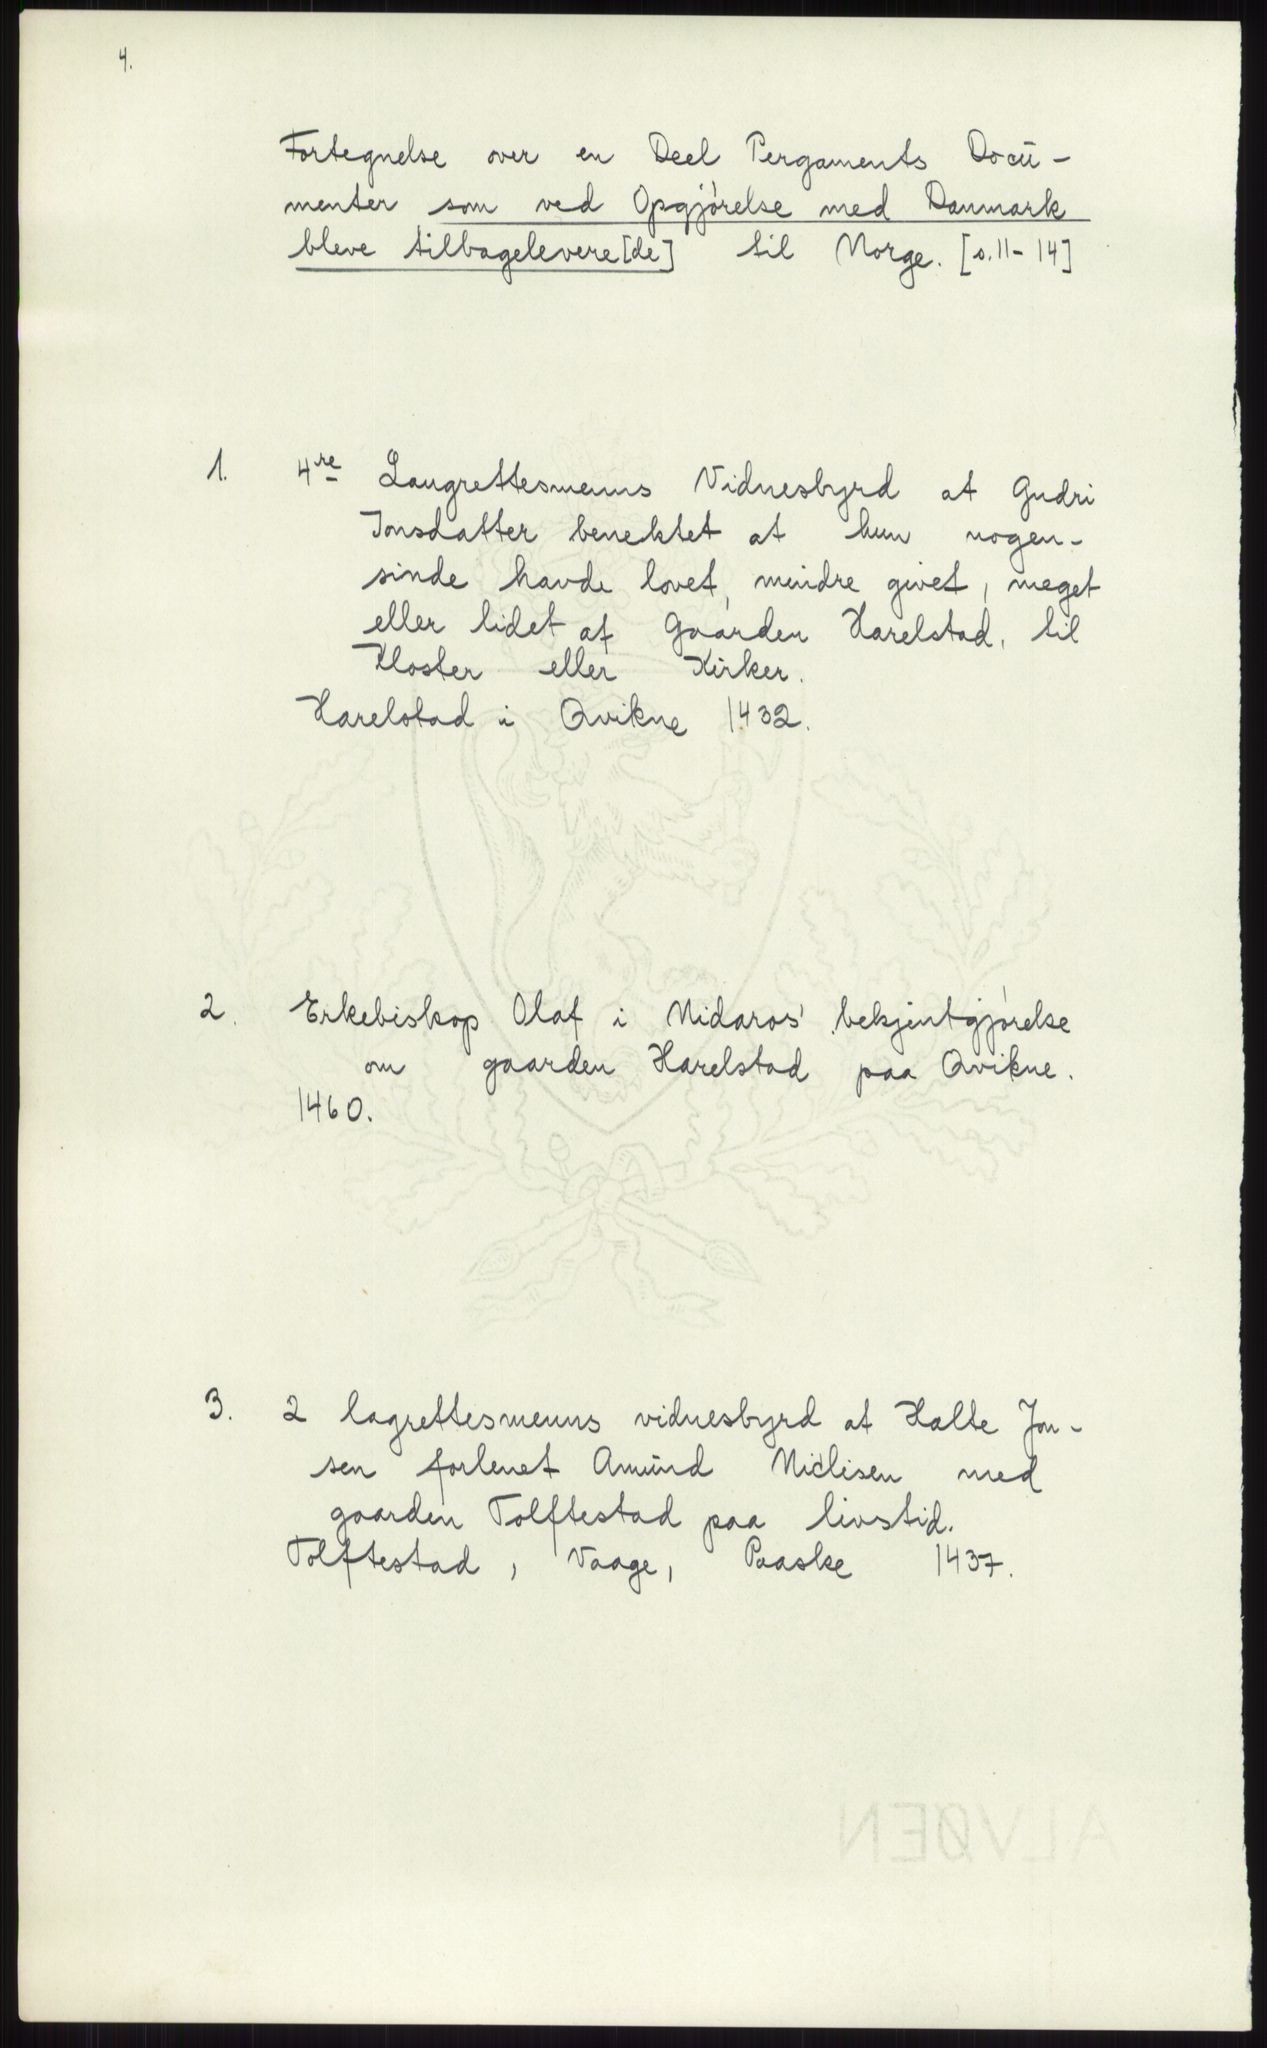 4.
Fortegnelse over en Deel Pergaments Docü-
menter som ved Opgjørelse med Danmark
bleve tilbagelevere[de] til Norge. [s. 11-14]
1. 4re Laugrettesmenns Vidnesbyrd at Gudri
Jonsdatter benektet at hun nogen-
sinde havde lovet, mindre givet, meget
eller lidet af Gaarden Harelstad, til
Kloster eller Kirker.
Harelstad i Qvikne 1432.
2. Erkebiskop Olaf i Nidaros' bekjentgjørelse
om gaarden Harelstad paa Qvikne.
1460.
3. 2 lagrettesmenns vidnesbyrd at Halte Jon-
sen forlenet Amünd Niclisen med
gaarden Tolftestad paa livstid.
Tolftestad, Vaage, Paaske 1437.
ALVØEN